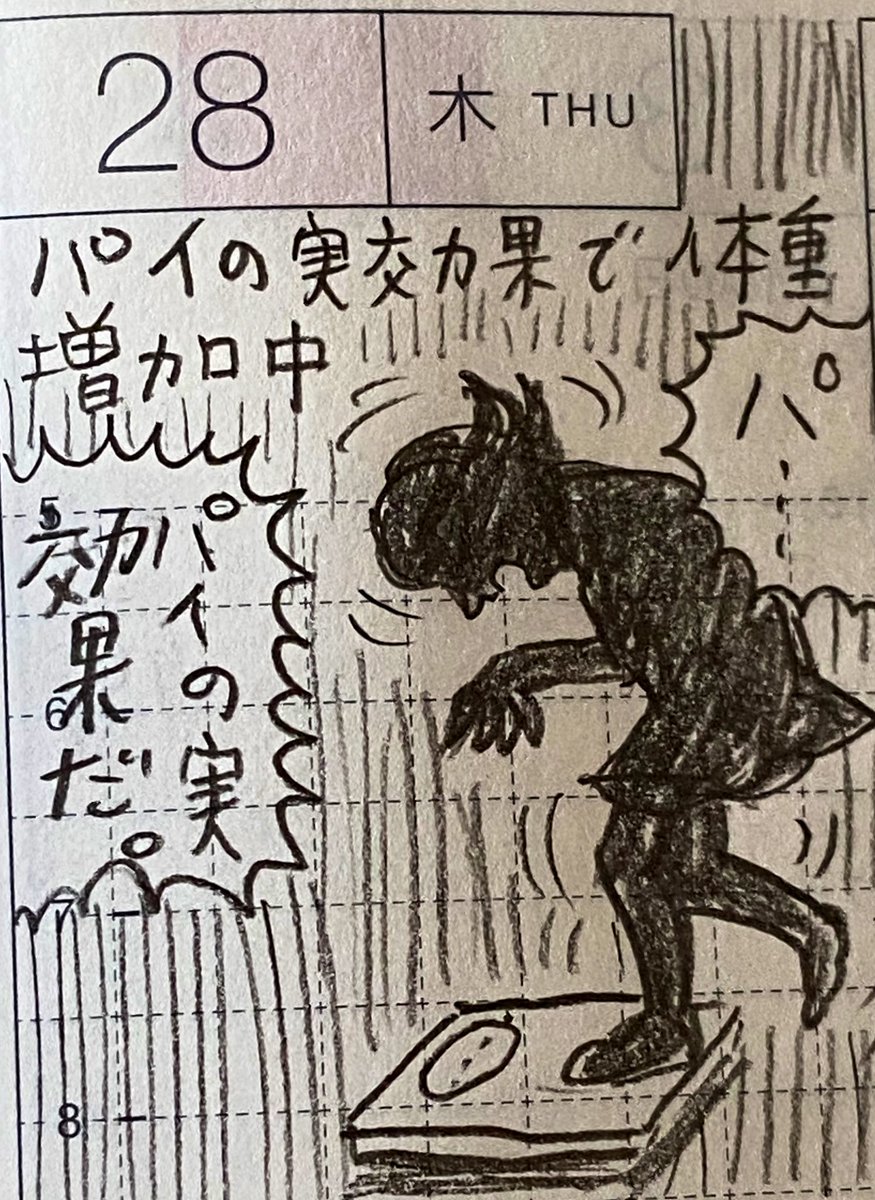 28 木 THU
パイの実効果で体重
増加中
パ…
パイの実
効果だ。
5
6
7
8